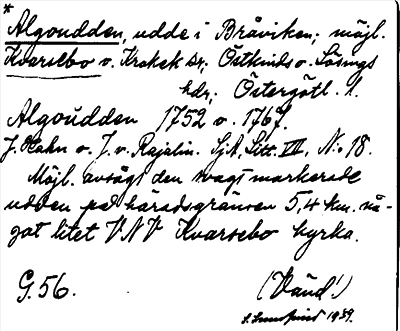 *
Algoudden, udde i Bråviken; möjl.
Kvarsebo o. Krokek sr; Östkinds o. Lösings
hdr; Östergötl. l.
Algoudden 1752 o. 1767.
J. Hahn o. J. v. Rajalin. SjA, Litt. VII, N:o 18.
Möjl. avsågs den svagt markerade
udden på häradsgränsen 5,4 km. nå-
got litet VNV Kvarsebo kyrka.
G. 56. (Vänd!)
1939.